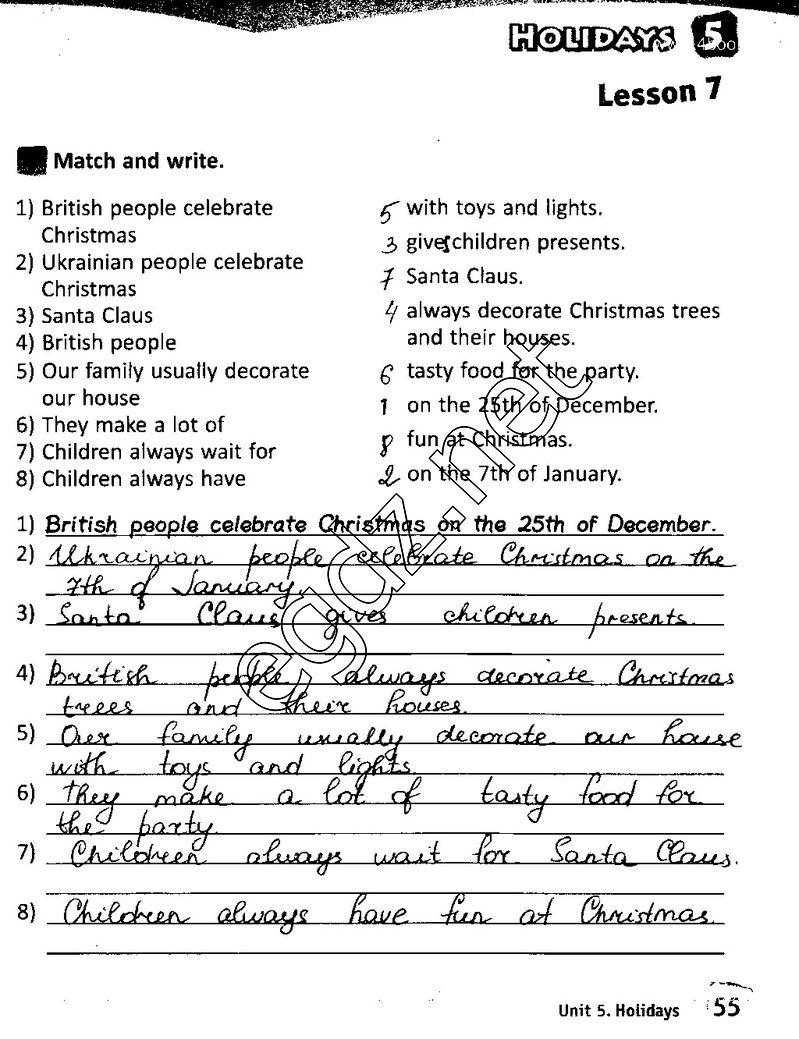 HOLIDAYS 5
Lesson 7
Match and write.
1) British people celebrate
Christmas
2) Ukrainian people celebrate
Christmas
3) Santa Claus
4) British people
5) Our family usually decorate
our house
6) They make a lot of
7) Children always wait for
8) Children always have
5 with toys and lights.
3 gives children presents.
7 Santa Claus.
4 always decorate Christmas trees
and their houses.
6 tasty food for the party.
1 on the 25th of December.
8 fun at Christmas.
2 on the 7th of January.
1) British people celebrate Christmas on the 25th of December.
2) Ukrainian people celebrate Christmas on the
7th of January.
3) Santa Claus gives children presents.
4) British people always decorate Christmas
trees and their houses.
5) Our family usually decorate our house
with toys and lights.
6) They make a lot of tasty food for
the party.
7) Children always wait for Santa Claus.
8) Children always have fun at Christmas.
egdz.net
Unit 5. Holidays 55